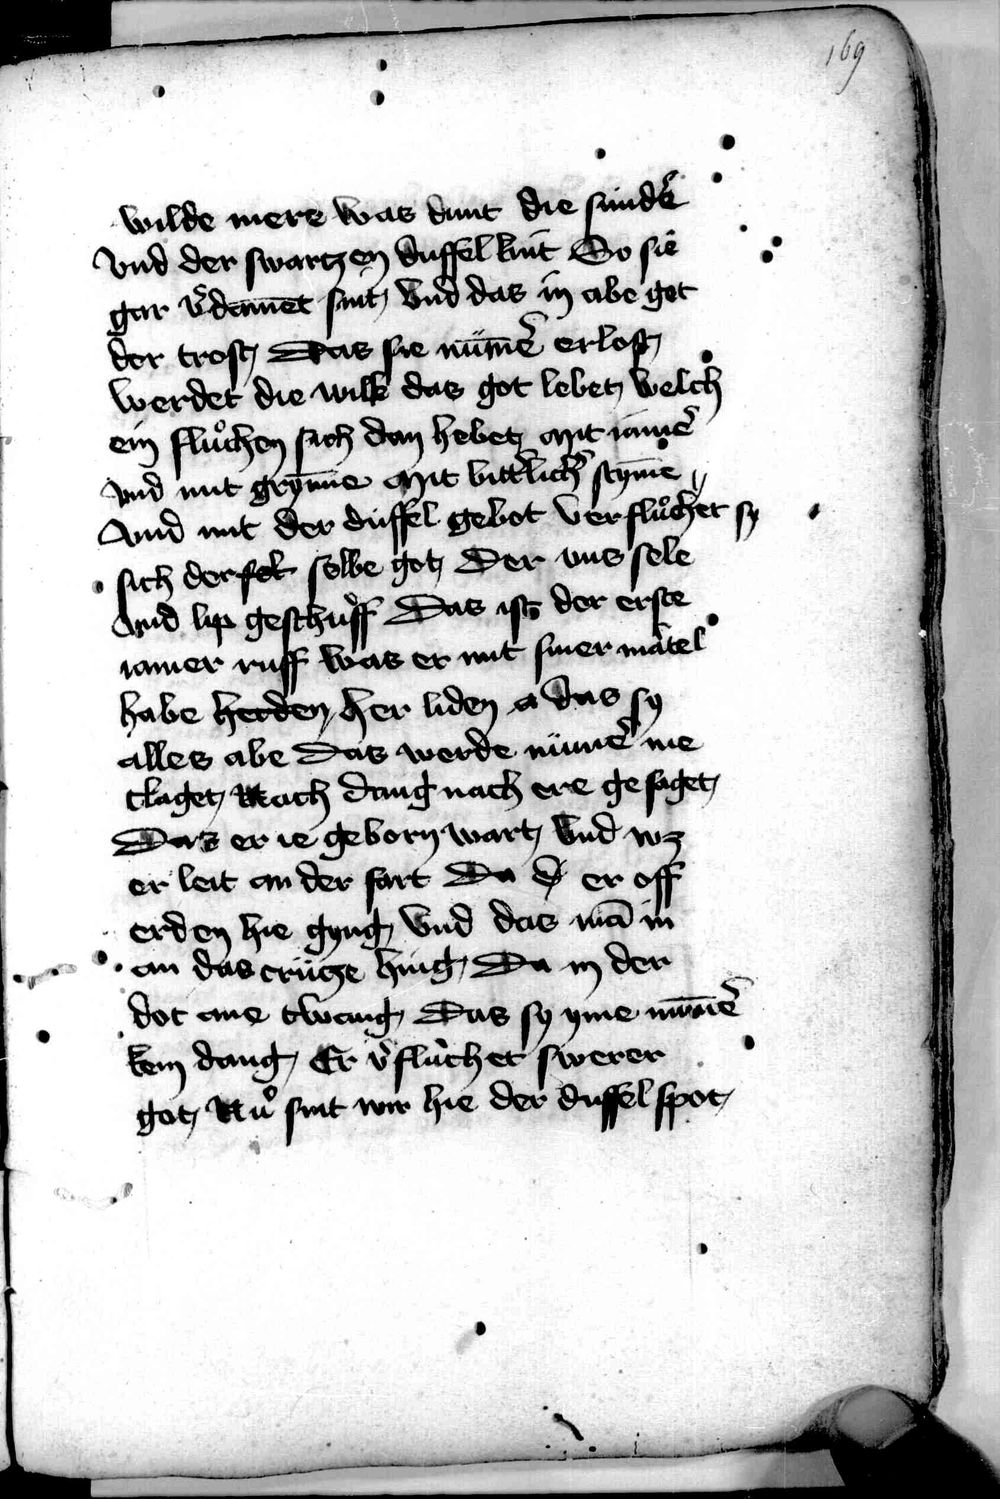 169
wilde mere was dunt die sündẽ
Vnd der swartzen duffel kint So sie
gar v̉damet sint Vnd das in abe get
der trost Das sie nümẽ erlost
werdet die wilk das got lebet welch
ein fluͦchen sich dan hebet Mit iamẽ
vnd mit grymme Mit bitt̉lich̉ stym̄e
Vnd mit der düffel gebot Verfluͦchet sy
sich der selbe got Der vns sele
Vnd lip geschuͦff Das ist der erste
iamer ruff Was er mit siner mātel
habe herden her liden a das sy
alles abe Das werde nümẽ me
claget Nach dang nach ere gesaget
Das er ie geborn wart Vnd wz
er leit an der fart Da er off
erden hie gyng Vnd das mā in
an das crütze hing Da in der
dot ane twang Das sy yme nüm̄ẽ
kein dang Er v̉fluͦchet swerer
got Nuͦ sint wir hie der duffel spot